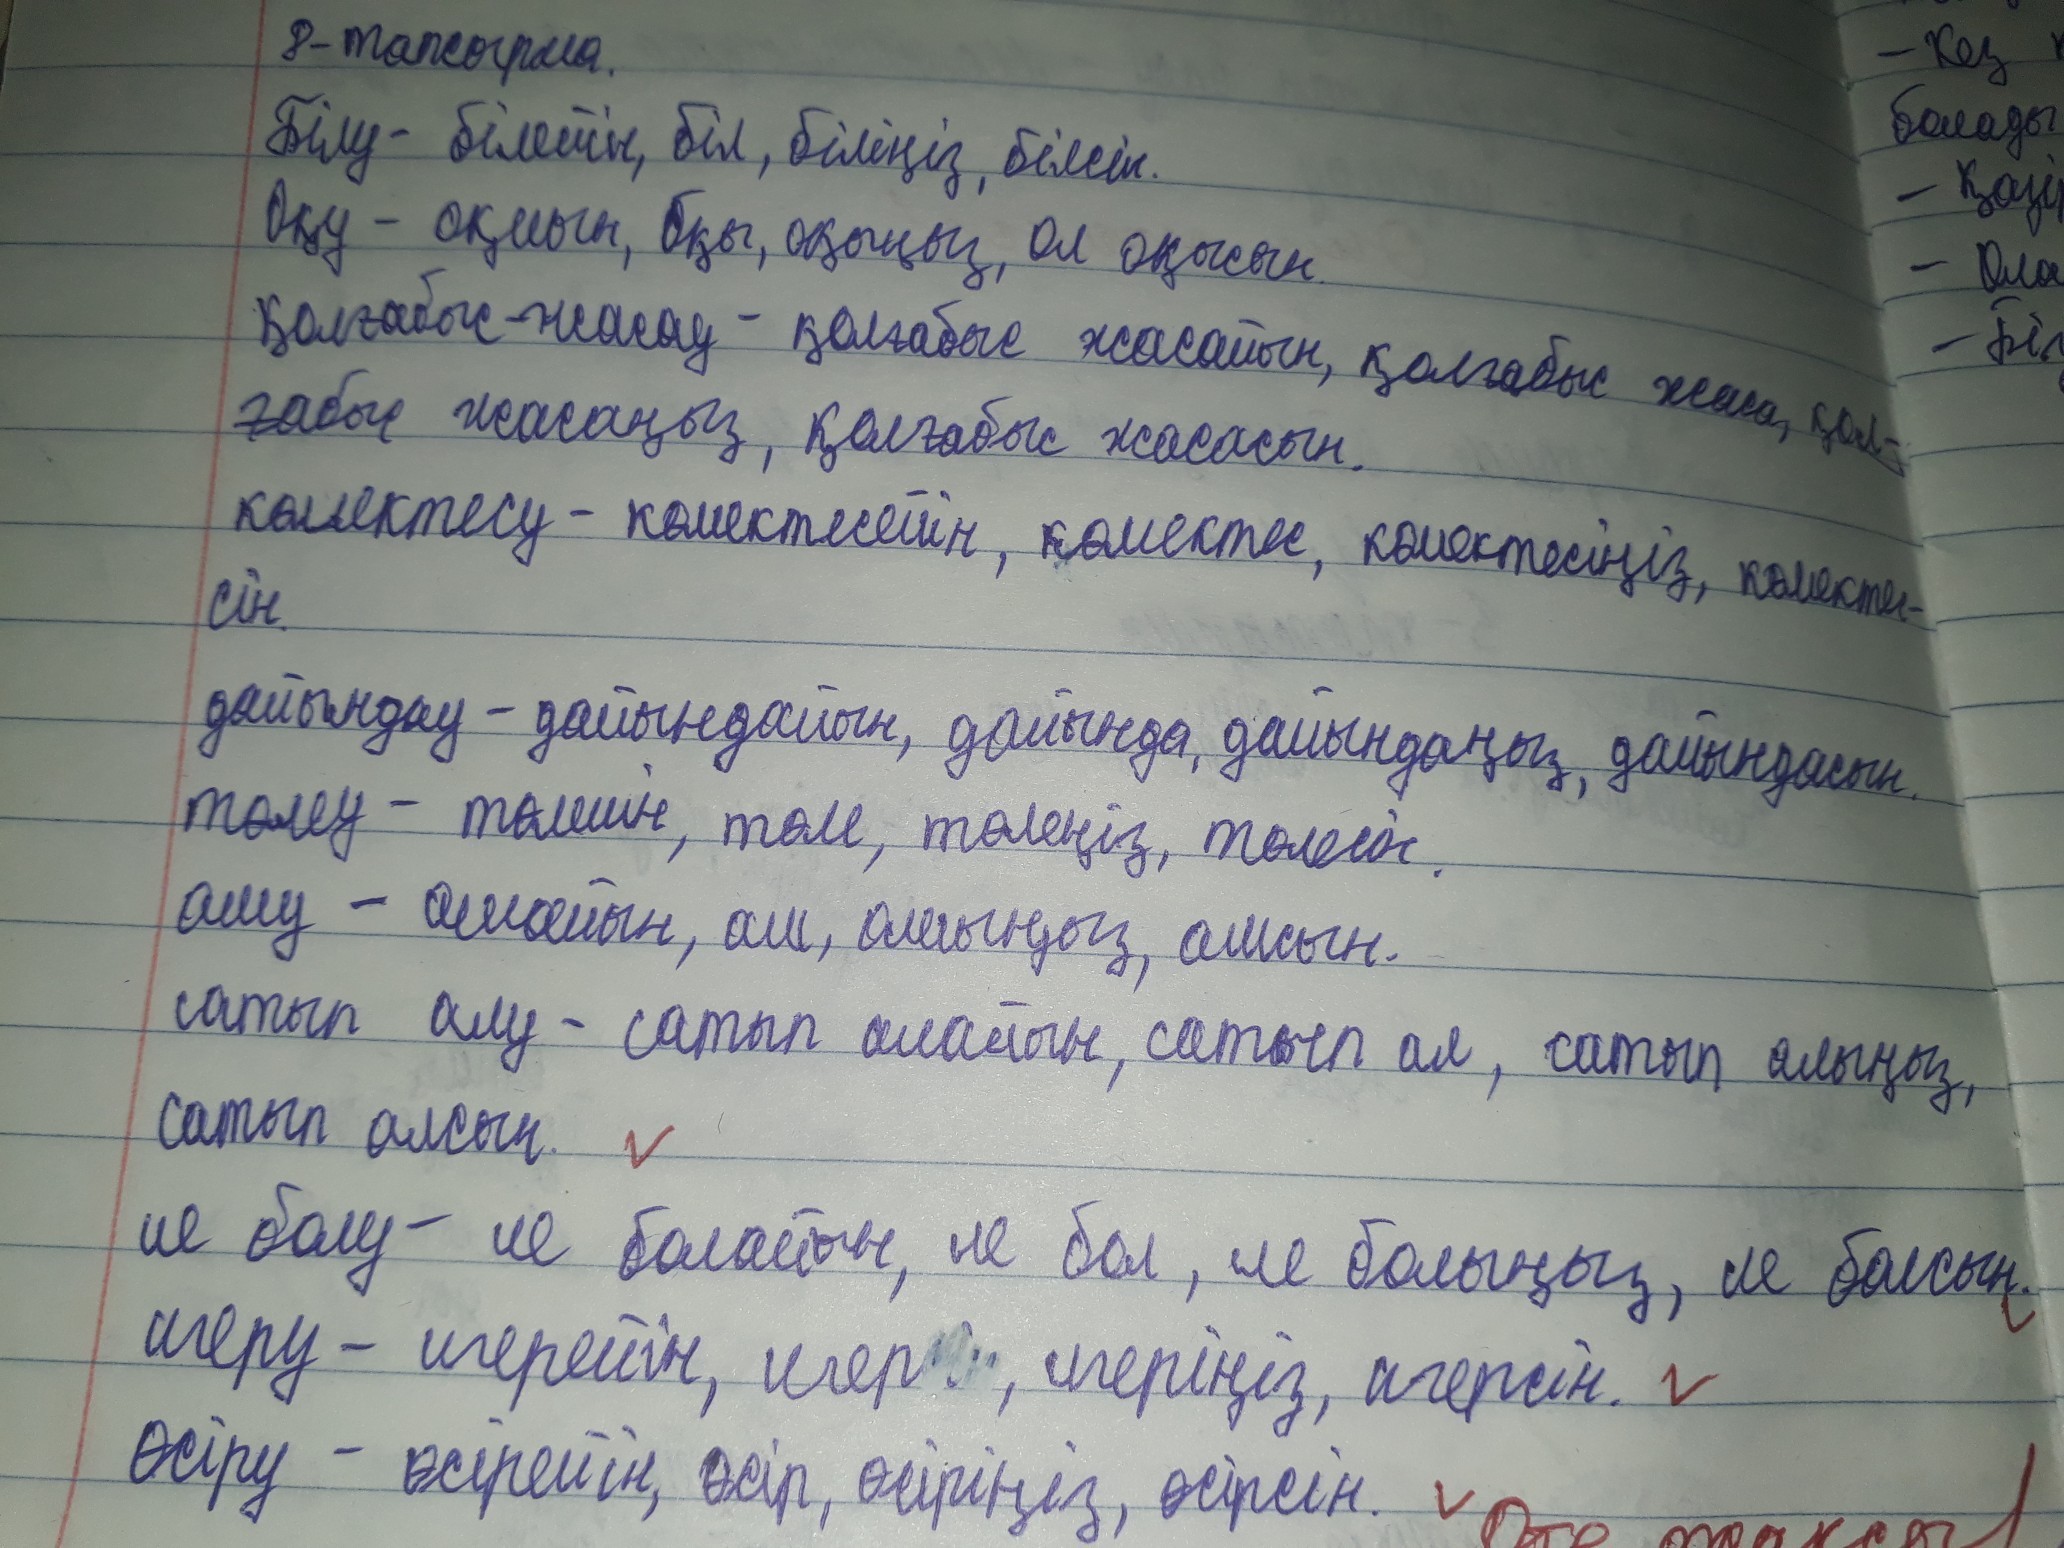 8-тапсырма.
Білу - білейін, біл, біліңіз, білсін.
Оқу - оқиын, Оқы, оқыңыз, ол оқысын.
Қолғабыс-жасау - қолғабыс жасайын, қолғабыс жаса, қол-
ғабыс жасаңыз, қолғабыс жасасын.
көмектесу - көмектесейін, көмектес, көмектесіңіз, көмектес-
сін.
дайындау - дайындайын, дайында, дайындаңыз, дайындасын.
төлеу - төлейін, төле, төлеңіз, төлесін.
ашу - ашайын, аш, ашыңыз, ашсын.
сатып алу - сатып алайын, сатып ал, сатып алыңыз,
сатып алсын.
ие болу - ие болайын, ие бол, ие болыңыз, ие болсын.
игеру - игерейін, игер, игеріңіз, игерсін.
Өсіру - өсірейін, өсір, өсіріңіз, өсірсін.
Өте жақсы!
- Кез
болады
- Қазір
- Ола
- Біл